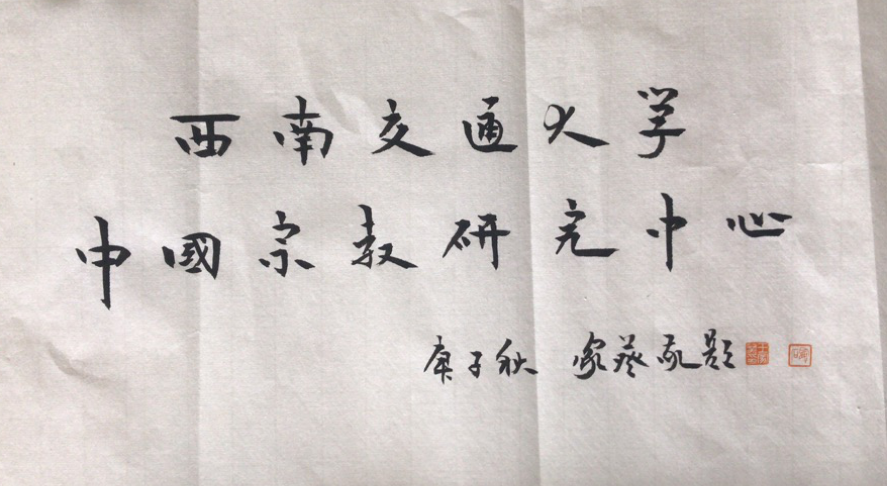 西南交通大学
中國宗教研究中心
庚子秋 家葵敬题